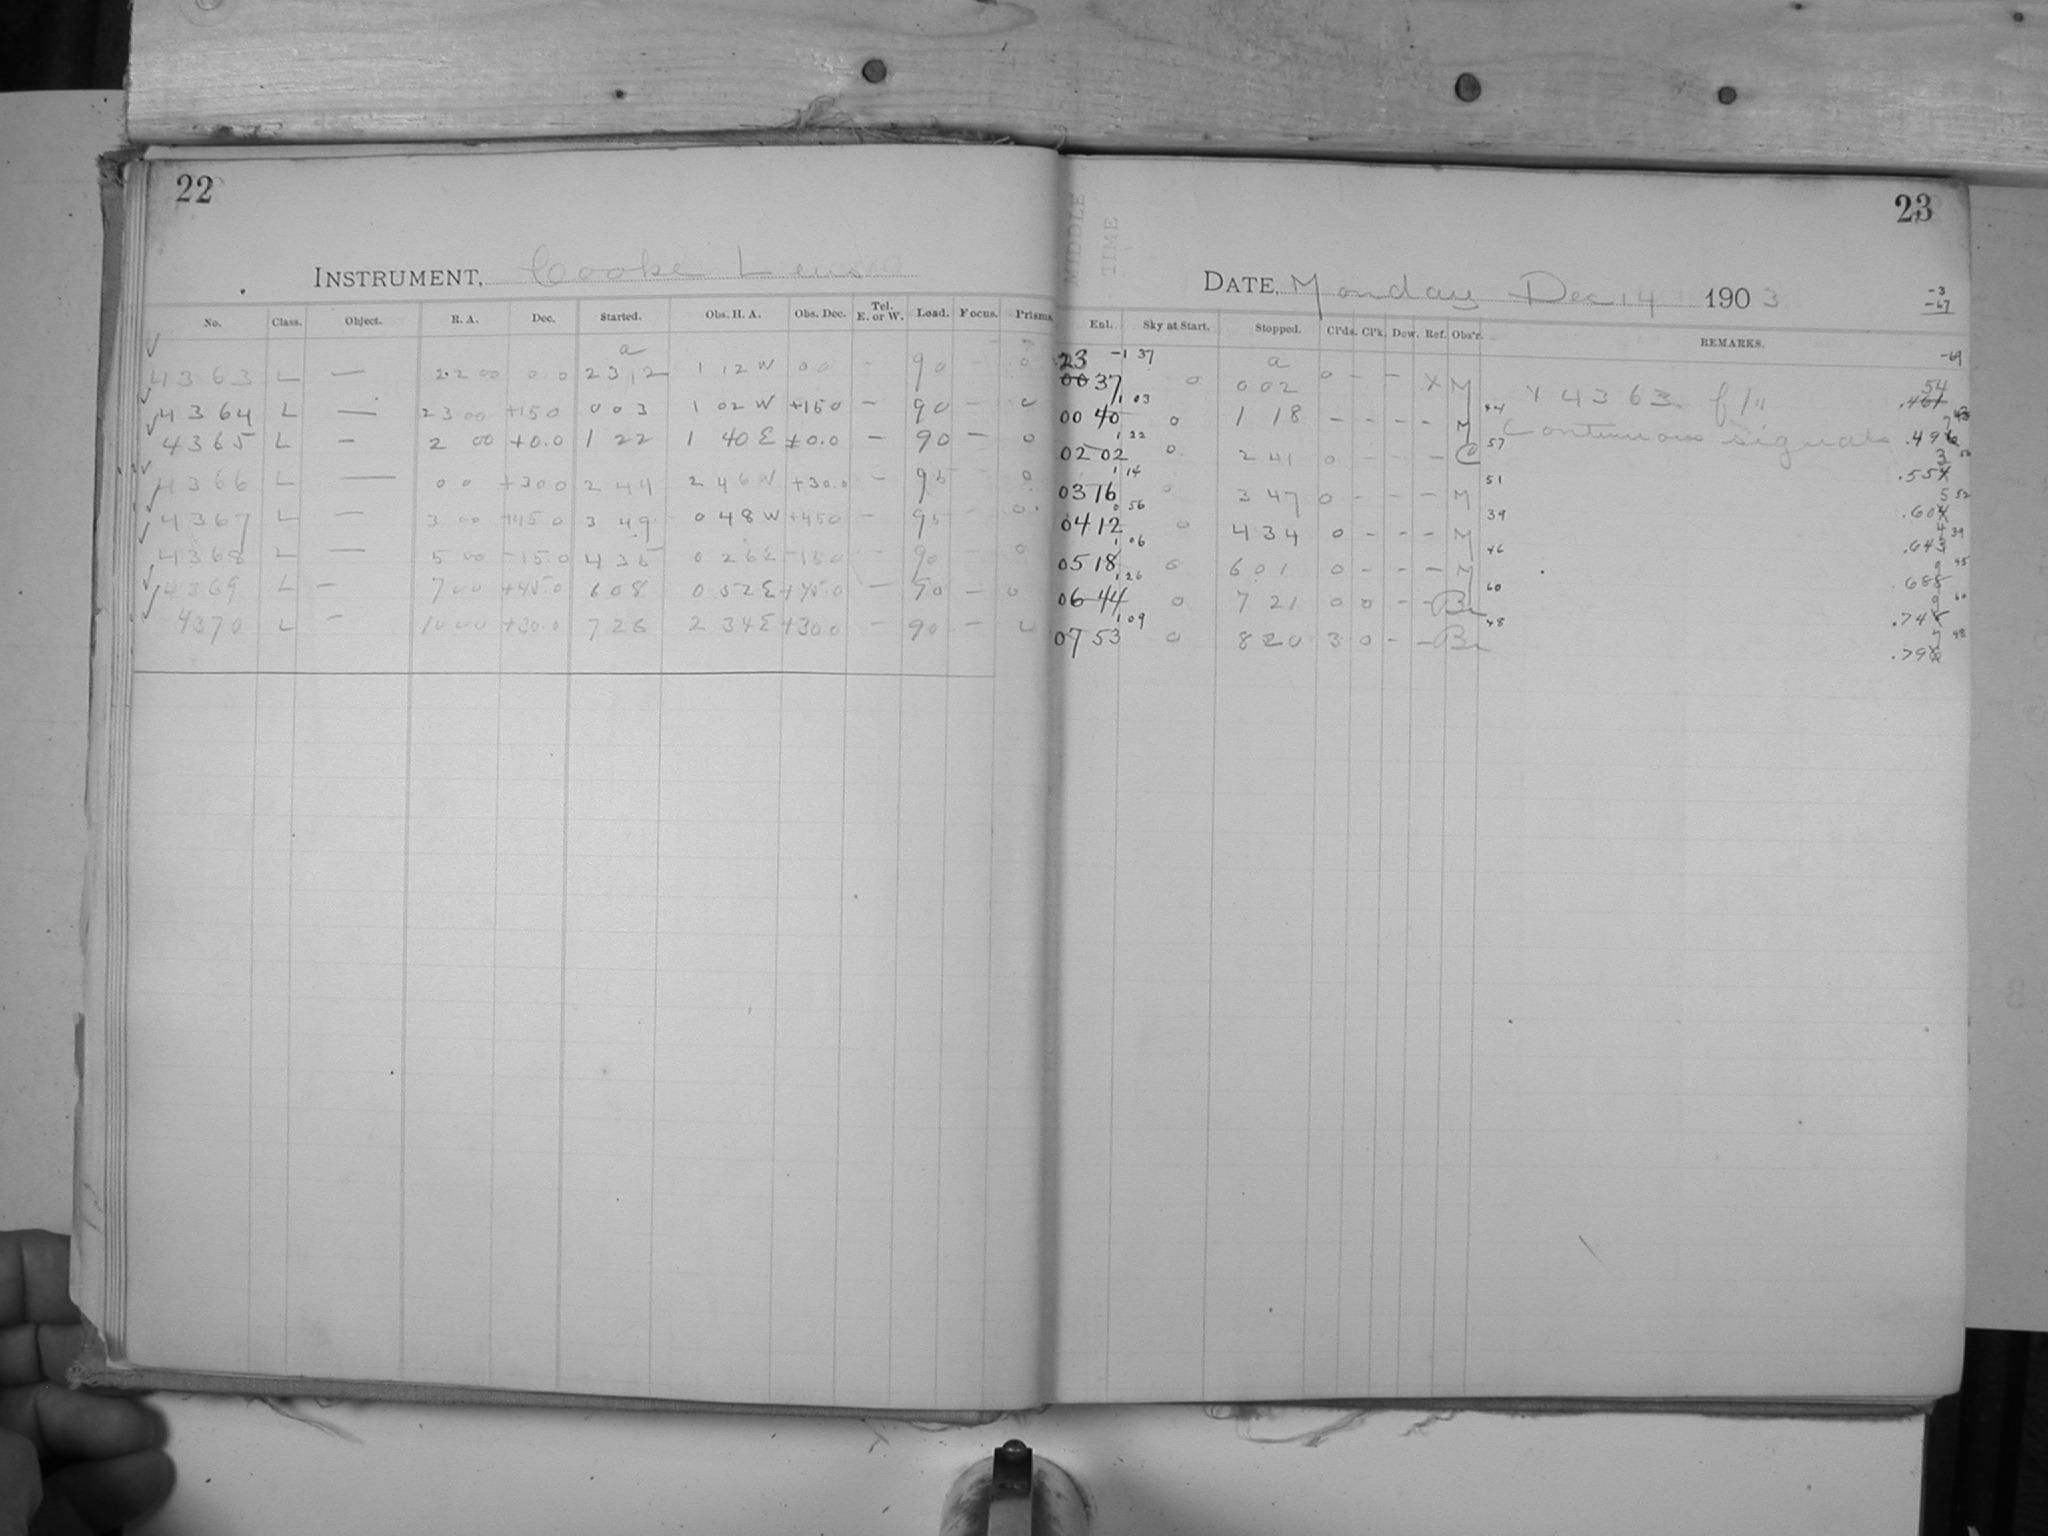 22
INSTRUMENT, Cooke Lens
No. Class. Object. R. A. Dec. Started. Obs. H. A. Obs. Dec. Tel. E. or W. Load. Focus. Prisms.
a
4363 L — 22 00 0.0 23 12 1 12 W 0 0 - 90 - 0
4364 L — 23 00 +15 0 0 03 1 02 W +15 0 - 90 - 0
4365 L — 2 00 +0.0 1 22 1 40 E +0.0 - 90 - 0
4366 L — 0 0 +30 0 2 44 2 46 W +30.0 - 95 - 0
4367 L — 3 00 +45 0 3 49 0 48 W +45 0 - 95 - 0
4368 L — 5 00 -15.0 4 35 0 26 E -15 0 - 90 - 0
4369 L — 7 00 +45.0 6 08 0 52 E +45.0 - 90 - 0
4370 L — 10 00 +30.0 7 26 2 34 E +30.0 - 90 - 0
23
MIDDLE TIME
DATE, Monday Dec 14 1903
-3
-67
Enl. Sky at Start. Stopped. Cl'ds. Cl'k. Dew. Ref. Obs'r. REMARKS.
-69
23 -1 37 a
00 37 0 0 02 0 - - X M X 4363 f/11 54
1 03
00 40 0 1 18 - - - - M 44 Continuous signals .49
1 22
02 02 0 2 41 0 - - - C 57 .55
1 14
03 16 0 3 47 0 - - - M 51 .60
0 56
04 12 0 4 34 0 - - - M 39 .64
1 06
05 18 0 6 01 0 - - - M 46 .68
1 26
06 44 0 7 21 0 0 - - Br 60 .74
1 09
07 53 0 8 20 3 0 - - Br 48 .79